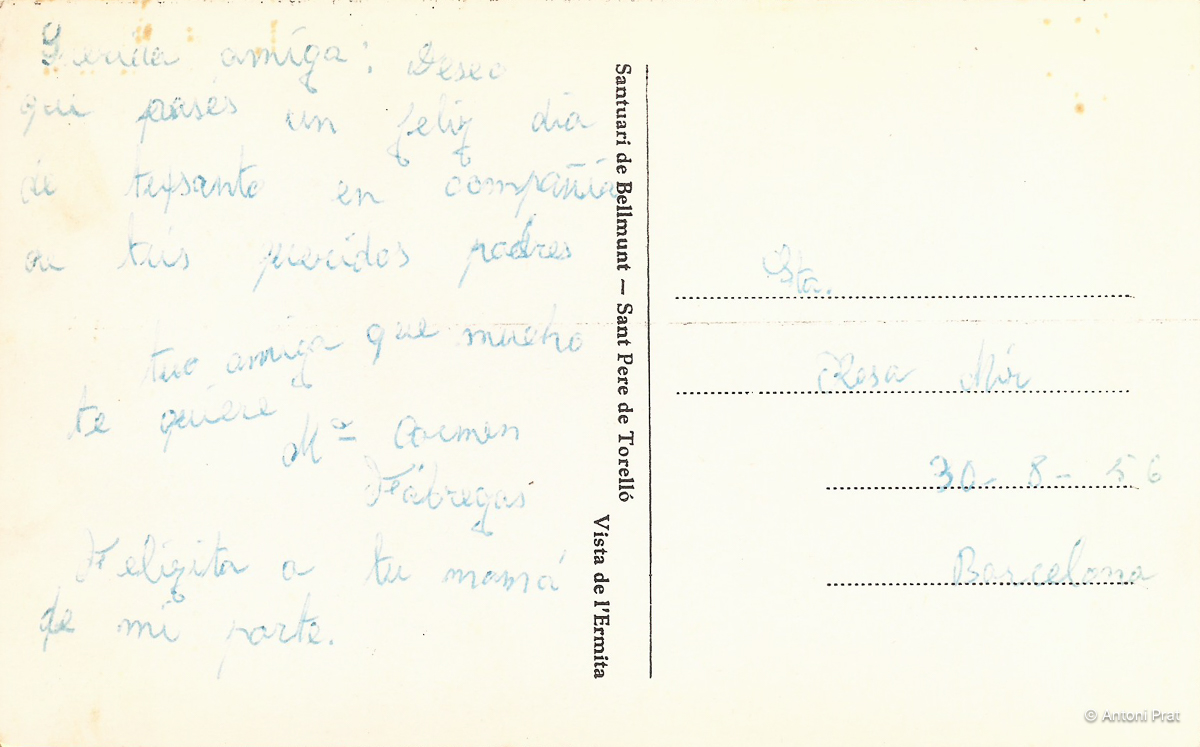 Querida amiga: Deseo
que pases un feliz dia
de tu santo en compañia
de tús queridos padres
tuo amiga que mucho
te quiere
Mª Carmen
Fábregas
Feligita a tu mamá
de mi parte.
Santuari de Bellmunt — Sant Pere de Torelló
Vista de l'Ermita
Sta.
Rosa Mir
30-8-56
Barcelona
© Antoni Prat